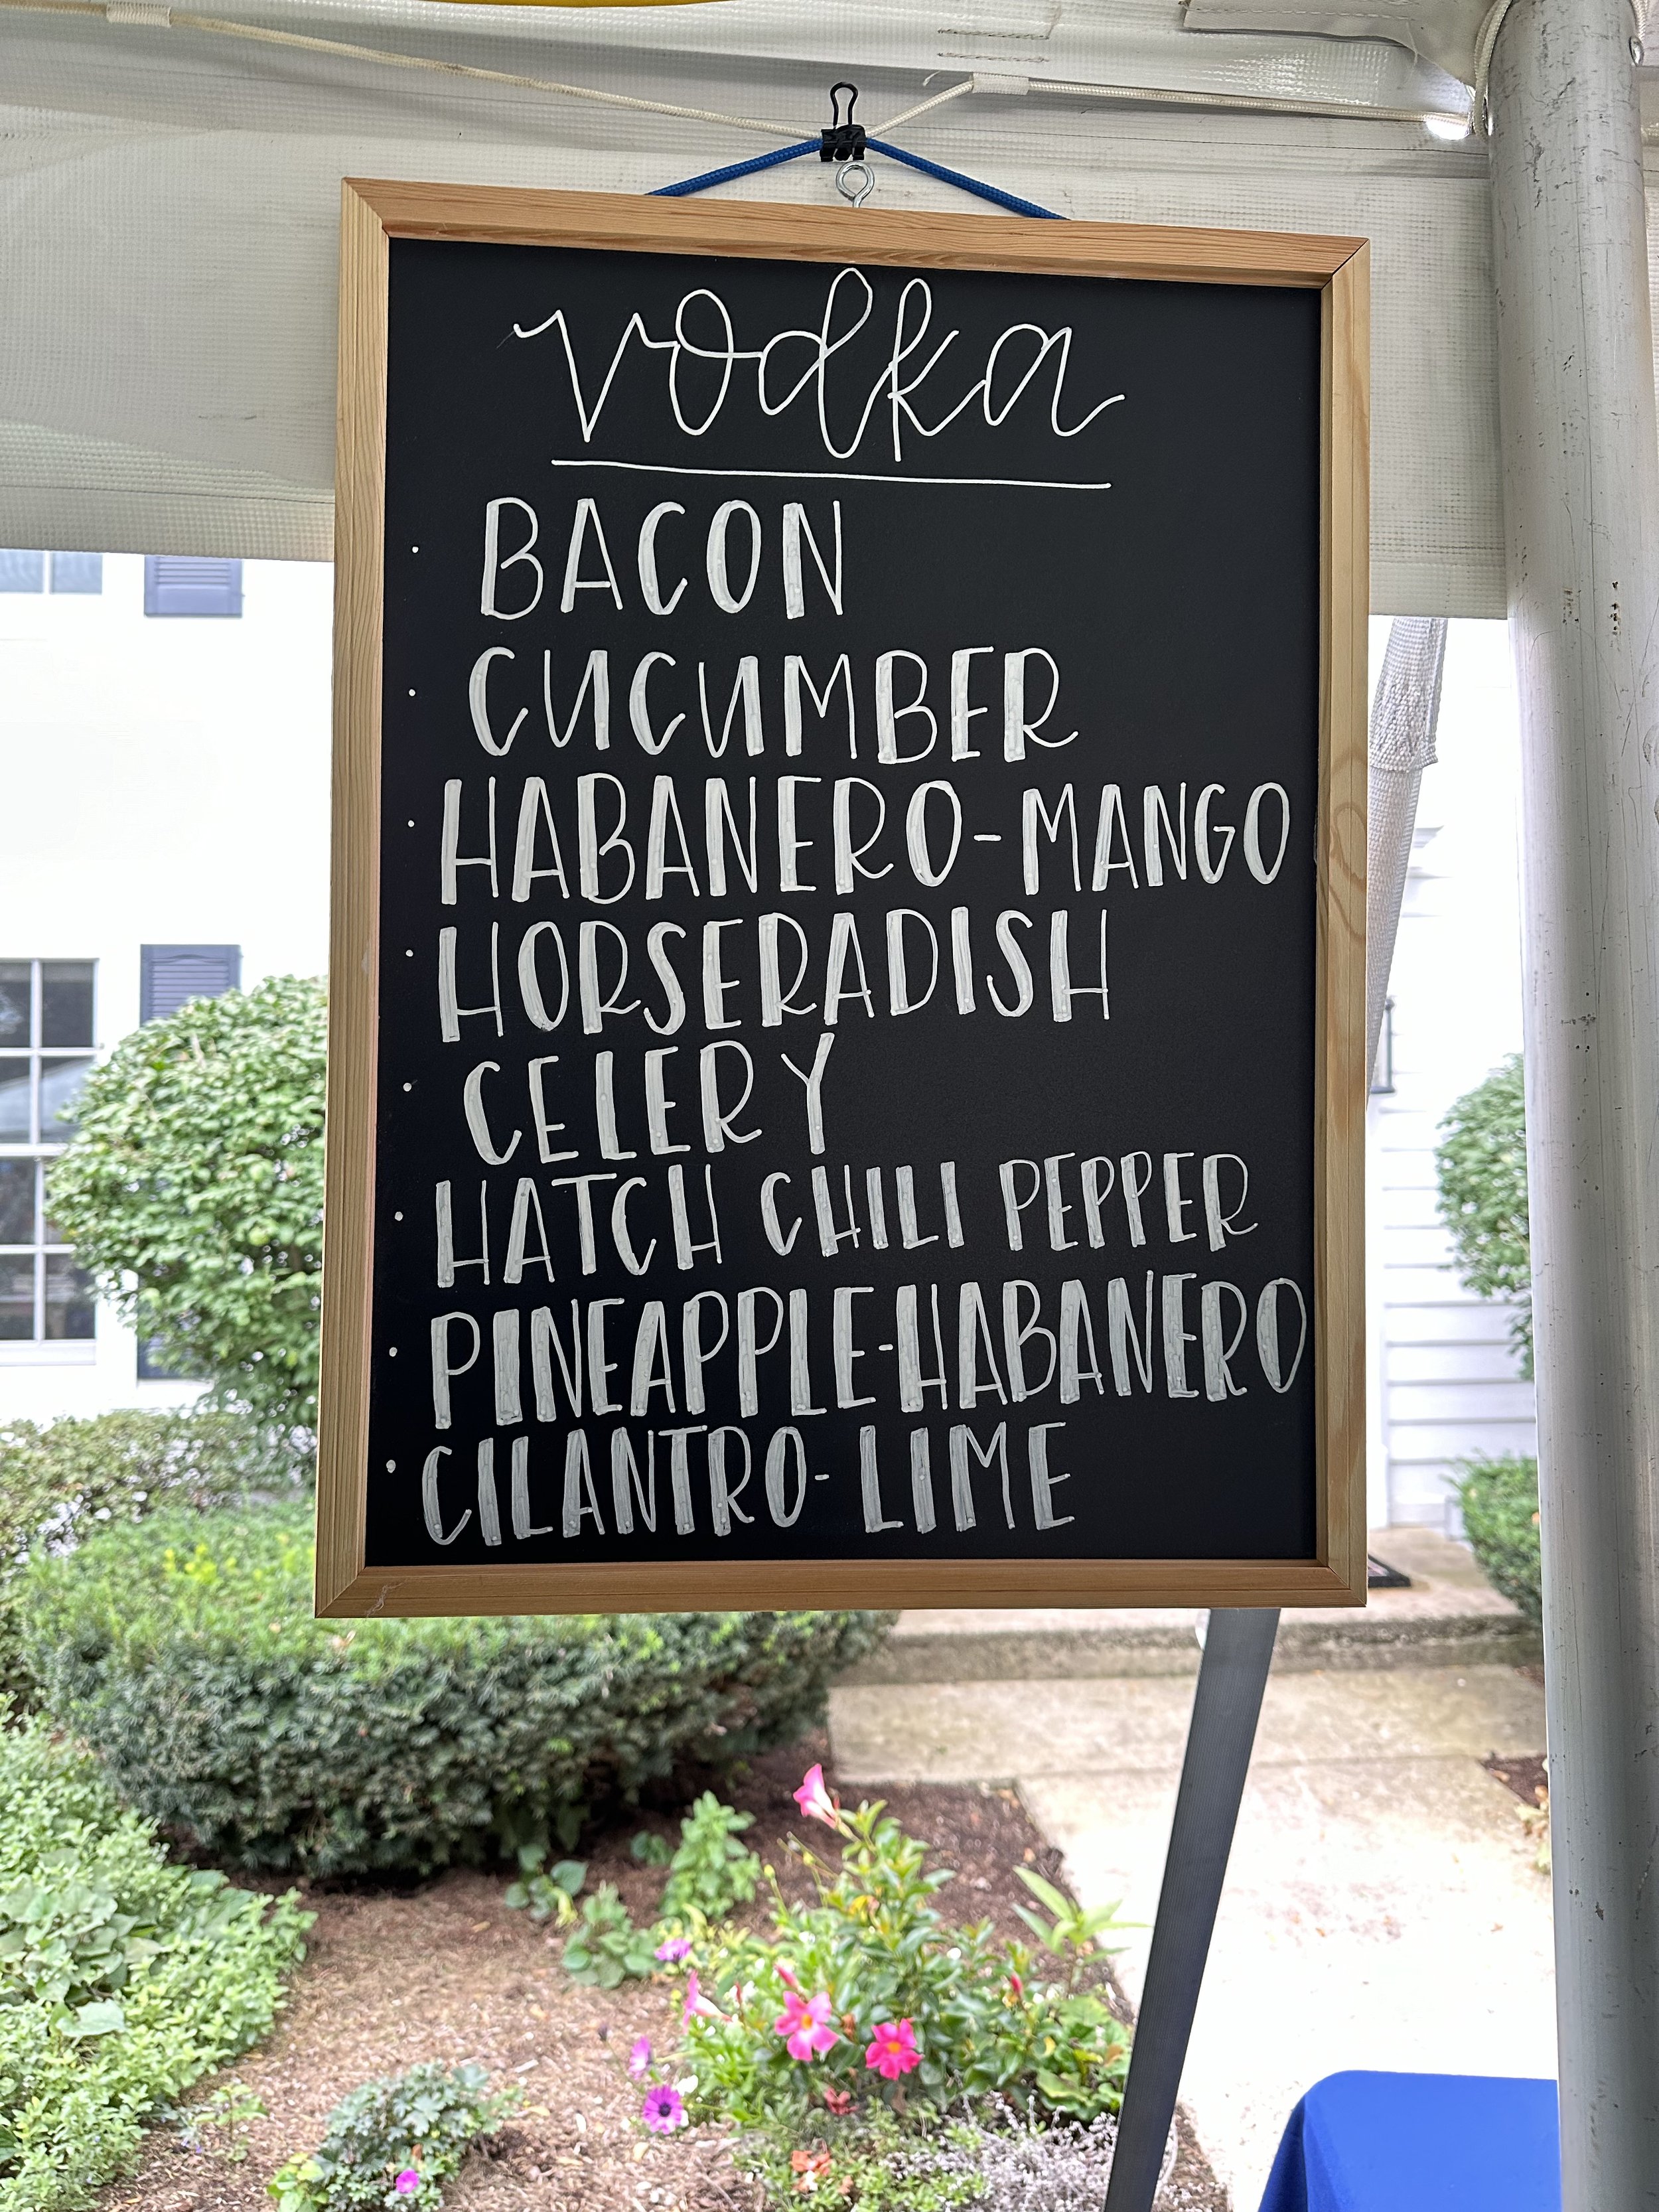 vodka
· BACON
· CUCUMBER
· HABANERO-MANGO
· HORSERADISH
· CELERY
· HATCH CHILI PEPPER
· PINEAPPLE-HABANERO
· CILANTRO-LIME